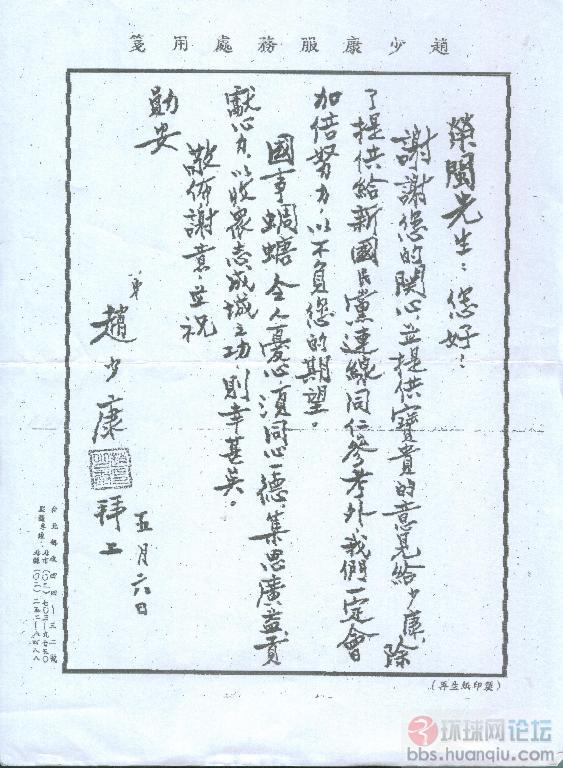 趙少康服務處用箋
榮閩先生：您好！
謝謝您的關心並提供寶貴的意見給少康，除
了提供給新國民黨連線同仁參考外，我們一定會
加倍努力，以不負您的期望。
國事蜩螗，令人憂心，須同心一德，集思廣益，貢
獻心力，以收眾志成城之功，則幸甚矣。
敬佈謝意，並祝
勛安
弟
趙少康
拜上
五月六日
(再生紙印製)
环球网论坛
bbs.huanqiu.com